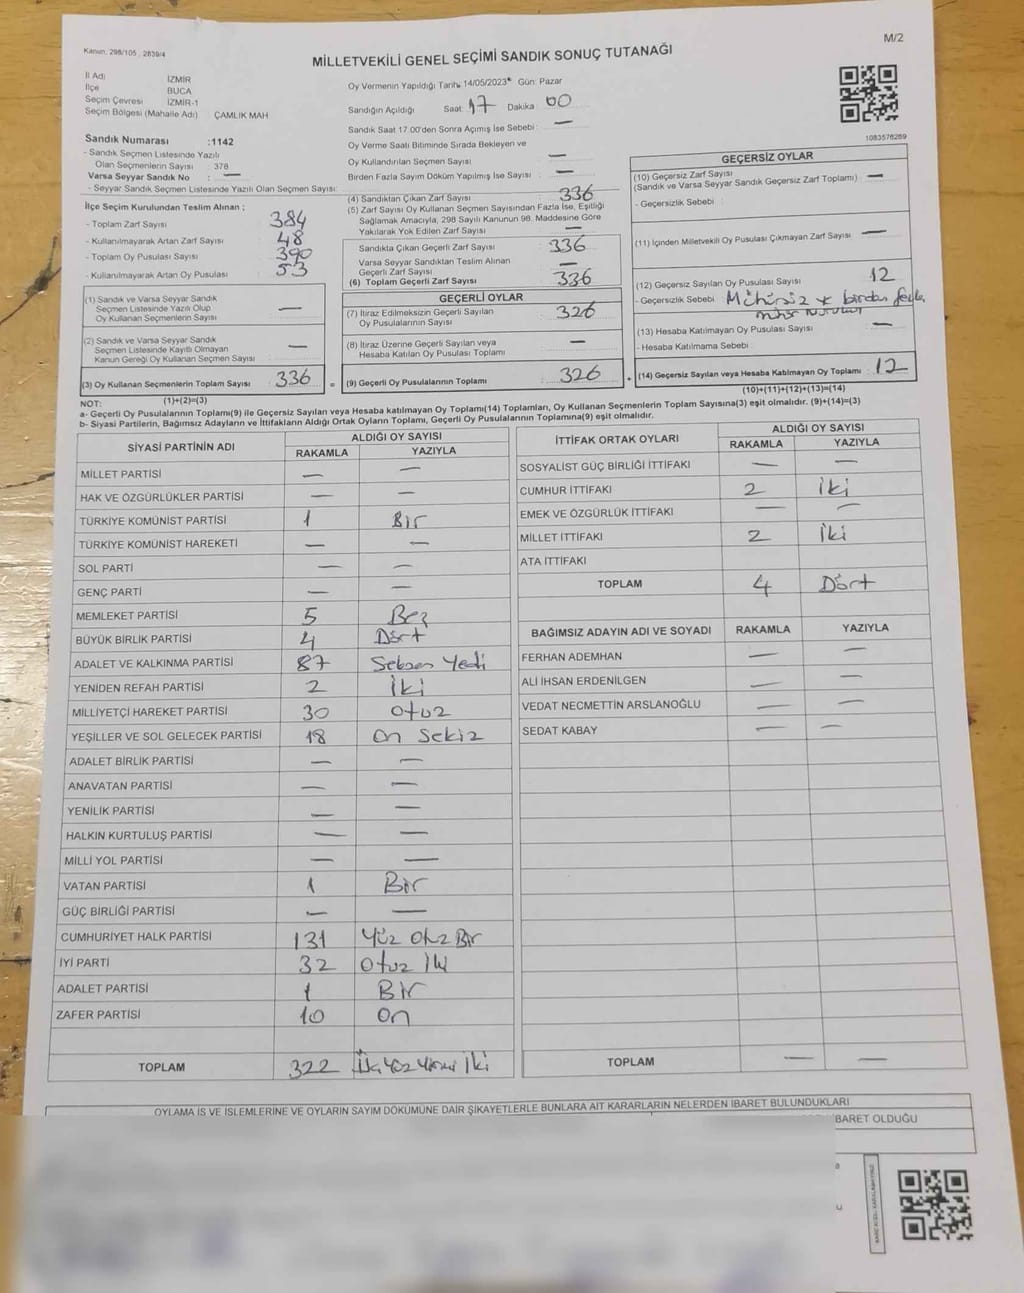 Kanun: 298/105, 2839/4
M/2
MİLLETVEKİLİ GENEL SEÇİMİ SANDIK SONUÇ TUTANAĞI
İl Adı İZMİR
İlçe BUCA
Seçim Çevresi İZMİR-1
Seçim Bölgesi (Mahalle Adı) ÇAMLIK MAH
Sandık Numarası :1142
- Sandık Seçmen Listesinde Yazılı
Olan Seçmenlerin Sayısı : 378
Varsa Seyyar Sandık No : —
- Seyyar Sandık Seçmen Listesinde Yazılı Olan Seçmen Sayısı:
İlçe Seçim Kurulundan Teslim Alınan ;
- Toplam Zarf Sayısı : 384
- Kullanılmayarak Artan Zarf Sayısı : 48
- Toplam Oy Pusulası Sayısı : 390
- Kullanılmayarak Artan Oy Pusulası : 53
(1) Sandık ve Varsa Seyyar Sandık
Seçmen Listesinde Yazılı Olup
Oy Kullanan Seçmenlerin Sayısı : —
(2) Sandık ve Varsa Seyyar Sandık
Seçmen Listesinde Kayıtlı Olmayan
Kanun Gereği Oy Kullanan Seçmen Sayısı : —
(3) Oy Kullanan Seçmenlerin Toplam Sayısı : 336 =
(1)+(2)=(3)
Oy Vermenin Yapıldığı Tarih: 14/05/2023 Gün: Pazar
Sandığın Açıldığı Saat: 17 Dakika 00
Sandık Saat 17.00'den Sonra Açımış İse Sebebi : —
Oy Verme Saati Bitiminde Sırada Bekleyen ve
Oy Kullandırılan Seçmen Sayısı : —
Birden Fazla Sayım Döküm Yapılmış İse Sayısı : —
(4) Sandıktan Çıkan Zarf Sayısı : 336
(5) Zarf Sayısı Oy Kullanan Seçmen Sayısından Fazla İse, Eşitliği
Sağlamak Amacıyla, 298 Sayılı Kanunun 98. Maddesine Göre
Yakılarak Yok Edilen Zarf Sayısı : —
Sandıkta Çıkan Geçerli Zarf Sayısı : 336
Varsa Seyyar Sandıktan Teslim Alınan
Geçerli Zarf Sayısı : —
(6) Toplam Geçerli Zarf Sayısı : 336
GEÇERLİ OYLAR
(7) İtiraz Edilmeksizin Geçerli Sayılan
Oy Pusulalarının Sayısı : 326
(8) İtiraz Üzerine Geçerli Sayılan veya
Hesaba Katılan Oy Pusulası Toplamı : —
(9) Geçerli Oy Pusulalarının Toplamı : 326 +
1083576269
GEÇERSİZ OYLAR
(10) Geçersiz Zarf Sayısı : —
(Sandık ve Varsa Seyyar Sandık Geçersiz Zarf Toplamı)
- Geçersizlik Sebebi :
(11) İçinden Milletvekili Oy Pusulası Çıkmayan Zarf Sayısı : —
(12) Geçersiz Sayılan Oy Pusulası Sayısı : 12
- Geçersizlik Sebebi : Mühürsiz birden
(13) Hesaba Katılmayan Oy Pusulası Sayısı : —
- Hesaba Katılmama Sebebi :
(14) Geçersiz Sayılan veya Hesaba Katılmayan Oy Toplamı : 12
(10)+(11)+(12)+(13)=(14)
NOT:
a- Geçerli Oy Pusulalarının Toplamı(9) ile Geçersiz Sayılan veya Hesaba katılmayan Oy Toplamı(14) Toplamları, Oy Kullanan Seçmenlerin Toplam Sayısına(3) eşit olmalıdır. (9)+(14)=(3)
b- Siyasi Partilerin, Bağımsız Adayların ve İttifakların Aldığı Ortak Oyların Toplamı, Geçerli Oy Pusulalarının Toplamına(9) eşit olmalıdır.
SİYASİ PARTİNİN ADI ALDIĞI OY SAYISI
RAKAMLA YAZIYLA
MİLLET PARTİSİ — —
HAK VE ÖZGÜRLÜKLER PARTİSİ — —
TÜRKİYE KOMÜNİST PARTİSİ 1 Bir
TÜRKİYE KOMÜNİST HAREKETİ — —
SOL PARTİ — —
GENÇ PARTİ — —
MEMLEKET PARTİSİ 5 Beş
BÜYÜK BİRLİK PARTİSİ 4 Dört
ADALET VE KALKINMA PARTİSİ 87 Seksen Yedi
YENİDEN REFAH PARTİSİ 2 İki
MİLLİYETÇİ HAREKET PARTİSİ 30 Otuz
YEŞİLLER VE SOL GELECEK PARTİSİ 18 On Sekiz
ADALET BİRLİK PARTİSİ — —
ANAVATAN PARTİSİ — —
YENİLİK PARTİSİ — —
HALKIN KURTULUŞ PARTİSİ — —
MİLLİ YOL PARTİSİ — —
VATAN PARTİSİ 1 Bir
GÜÇ BİRLİĞİ PARTİSİ — —
CUMHURİYET HALK PARTİSİ 131 Yüz Otuz Bir
İYİ PARTİ 32 Otuz İki
ADALET PARTİSİ 1 Bir
ZAFER PARTİSİ 10 On
TOPLAM 322 Üç Yüz Yirmi İki
İTTİFAK ORTAK OYLARI ALDIĞI OY SAYISI
RAKAMLA YAZIYLA
SOSYALİST GÜÇ BİRLİĞİ İTTİFAKI — —
CUMHUR İTTİFAKI 2 İki
EMEK VE ÖZGÜRLÜK İTTİFAKI — —
MİLLET İTTİFAKI 2 İki
ATA İTTİFAKI
TOPLAM 4 Dört
BAĞIMSIZ ADAYIN ADI VE SOYADI RAKAMLA YAZIYLA
FERHAN ADEMHAN — —
ALİ İHSAN ERDENİLGEN — —
VEDAT NECMETTİN ARSLANOĞLU — —
SEDAT KABAY — —
TOPLAM — —
OYLAMA İŞ VE İŞLEMLERİNE VE OYLARIN SAYIM DÖKÜMÜNE DAİR ŞİKAYETLERLE BUNLARA AİT KARARLARIN NELERDEN İBARET BULUNDUKLARI
İBARET OLDUĞU